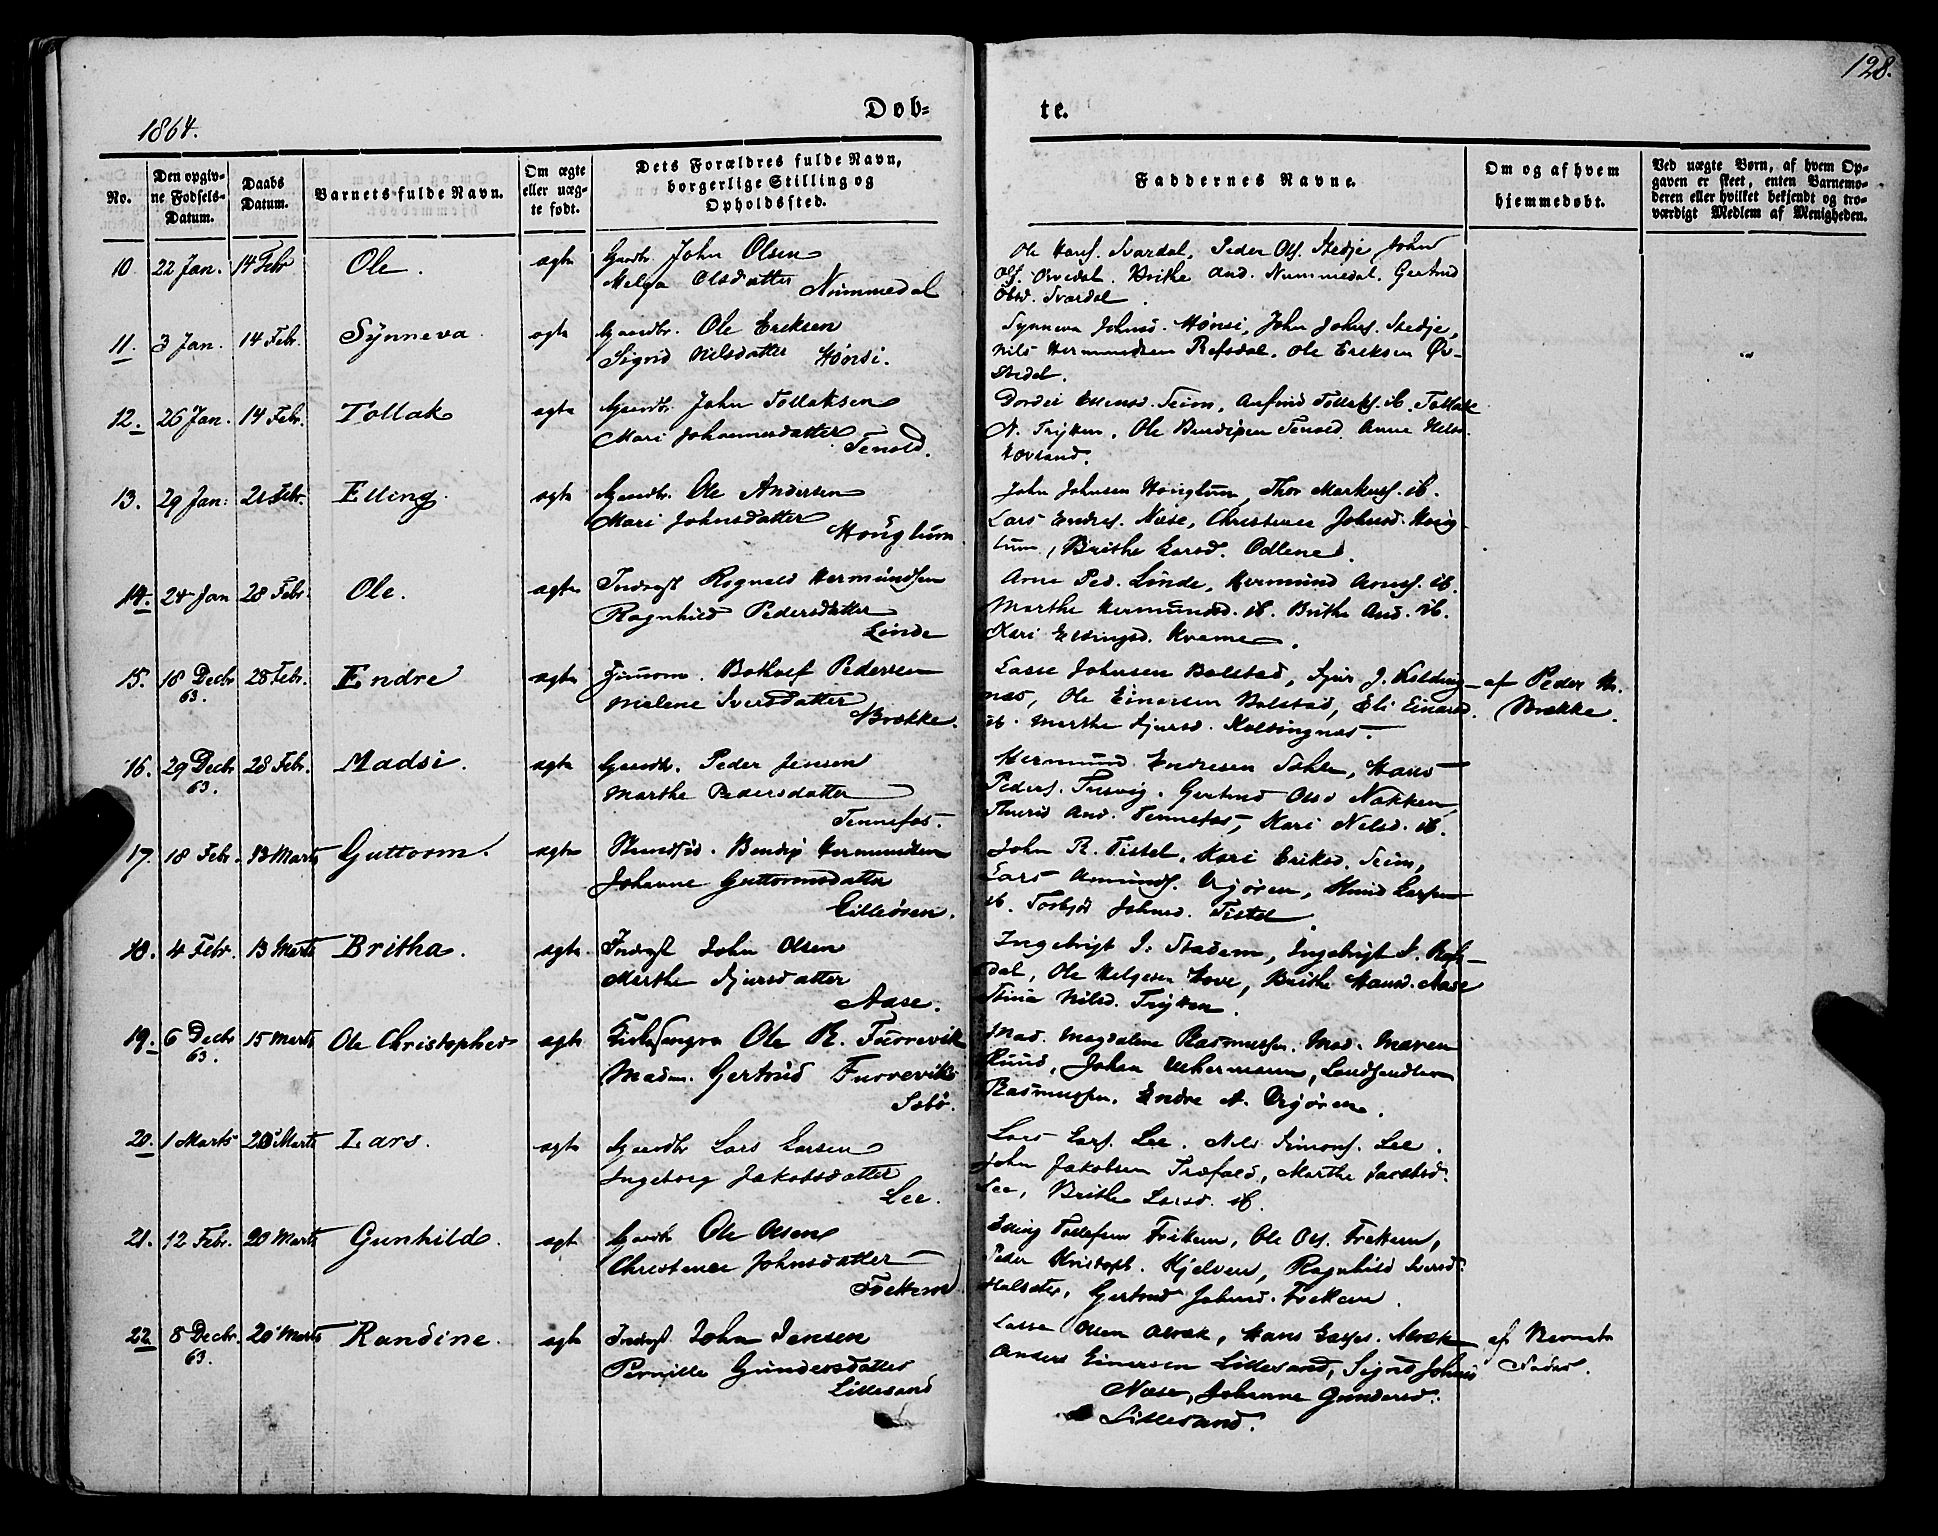 128.
1864.
Døb-
te.
No.
Den opgiv-
ne Fødsels-
Datum.
Daabs
Datum.
Barnets fulde Navn.
Om ægte
eller uæg-
te født.
Dets Forældres fulde Navn,
borgerlige Stilling og
Opholdssted.
Faddernes Navne.
Om og af hvem
hjemmedøbt.
Ved uægte Børn, af hvem Op-
gaven er skeet, enten Barnemo-
deren eller hvilket bekjendt og tro-
værdigt Medlem af Menigheden.
10 22 Jan. 14 Febr Ole. ægte Gaardbr. John Olsen
Helga Olsdatter Nummedal
Ole Hans. Svardal, Peder Ols. Stedje John
Ols. Brithe And. Nummedal. Gertrud
Olsd. Svardal.
11. 3 Jan. 14 Febr. Synneva. ægte Gaardbr. Ole Eriksen
Sigrid Nilsdatter Hønsi.
Synneva Johnsd. Hønsi, John Johns. Stedje,
Nils Hermundsen Refsdal. Ole Eriksen Øv-
stedal.
12. 26 Jan. 14 Febr. Tollak ægte Gaardbr. John Tollaksen
Mari Johannesdatter
Tenold.
Seim, Anfind Tollaks. ib. Tollak
N. Tryken, Ole Bendixen Tenold. Anne Nilsd.
Hovland.
13. 29 Jan. 21 Febr. Elling. ægte Gaardbr. Ole Andersen
Mari Johnsdatter
Hønglum
John Johnsen Honglum, Thor Markuss. ib.
Lars Endres. Næse, Christense Johnsd. Hong-
lum, Brithe Larsd. Odlene.
14. 24 Jan 28 Febr. Ole. ægte Inderst Rognald Hermundsen
Ragnhild Pedersdatter
Linde
Arne Ped. Linde, Hermund Arnes. ib.
Marthe Hermundsd. ib. Brithe And. ib.
Kari Ellingsd. Kvamme.
15. 18 Decbr 63. 28 Febr. Endre ægte Huusm. Botholf Pedersen
Malene Iversdatter
Brække.
Lasse Johnsen Bolstad, Sjur J. Kolding-
næs, Ole Einarsen Bolstad, Eli Einarsd.
ib. Marthe Sjursd. Koldingnæs.
af Peder
Brække.
16. 29 Decbr 63. 28 Febr. Madsi. ægte Gaardbr. Peder Jensen
Marthe Pedersdatter
Tennefos.
Hermund Endresen Hans
Peders. Gertrud Olsd Nakken,
Thurid And. Tennefos, Kari Nilsd. ib.
17. 18 Febr. 13 Marts Guttorm. ægte Strandsid. Bendix Hermundsen
Johanne Guttormsdatter
Lilleøren.
John R. Tistel, Kari Eriksd. Seim,
Lars Amunds. Ørjøren, Knud Larsen
ib. Torbjør Johnsd. Tistel
18. 4 Febr. 13 Marts Britha. ægte Inderst John Olsen
Marthe Sjursdatter
Aase.
Ingebrigt I. Stadem, Ingebrigt I. Refs-
dal, Ole Helgesen Hove, Brithe Hansd. Aase
Stina Nilsd. Tryken.
19. 6 Decbr 63. 15 Marts Ole Christopher ægte Kirkesanger Ole R. Furrevik
Madm. Gertrud Furrevik
Sæbø.
Mad. Magdalene Rasmussen. Mad. Maren
Ruud, Johan Uchermann, Landhandler
Rasmussen. Endre A. Ørjøren.
20. 1 Marts 20 Marts Lars. ægte Gaardbr Lars Larsen
Ingeborg Jakobsdatter
Lee.
Lars Lars. Lee. Nils Simons. Lee.
John Jakobsen Træfald, Marthe Jacobsd.
Lee, Brithe Larsd. ib.
21. 12 Febr. 20 Marts Gunhild. ægte Gaardbr Ole Olsen
Christence Johnsdatter
Frekem
Elling Tollefsen Frekem, Ole Ols. Frekem,
Peder Kristoph. Hjelven, Ragnhild Iversd.
Halsæter, Gertrud Johnsd. Frekem.
22 8 Decbr. 63. 20 Marts Randine. ægte Inderst John Jensen
Pernille Gundersdatter
Lillesand
Lasse Olsen Alræk, Hans Lasses. Alræk
Anders Einersen Lillesand, Sigrid Johnsd
Næse, Johanne Gundersd.
Lillesand.
af Barnets
Fader.